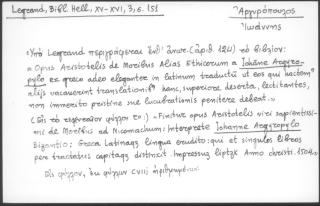 Legrand, Bibl. Hell., XV-XVI, 3, σ. 151
Ἀργυρόπουλος
Ἰωάννης
Ὑπὸ Legrand περιγράφεται ὑπ' (ἀριθ. 124) τὸ βιβλίον:
« Opus Aristotelis de Moribus Alias Ethicorum a Johāne Argyropylo ex greco adeo eleganter in latinum traductū ut eos qui hactem̄
alijs vacuerint translationib hanc, superiore deserta, lectitantes,
non immerito pristine sue lucubrationis penitere debeat. »
(Εἰς τὸ τελευταῖον φύλλον :) « Finitur opus Aristotelis viri sapientissimi de Moribus ad Nicomachum: interprete Iohanne Argyropylo
Bizantio; Greca Latinaq lingua erudito: qui et singulos libros
per tractatus capitaq distinxit. Impressum liptzk Anno christi. 1504 ».
Εἰς φύλλον, ἐκ φύλλων CVIII ἠριθμημένων.